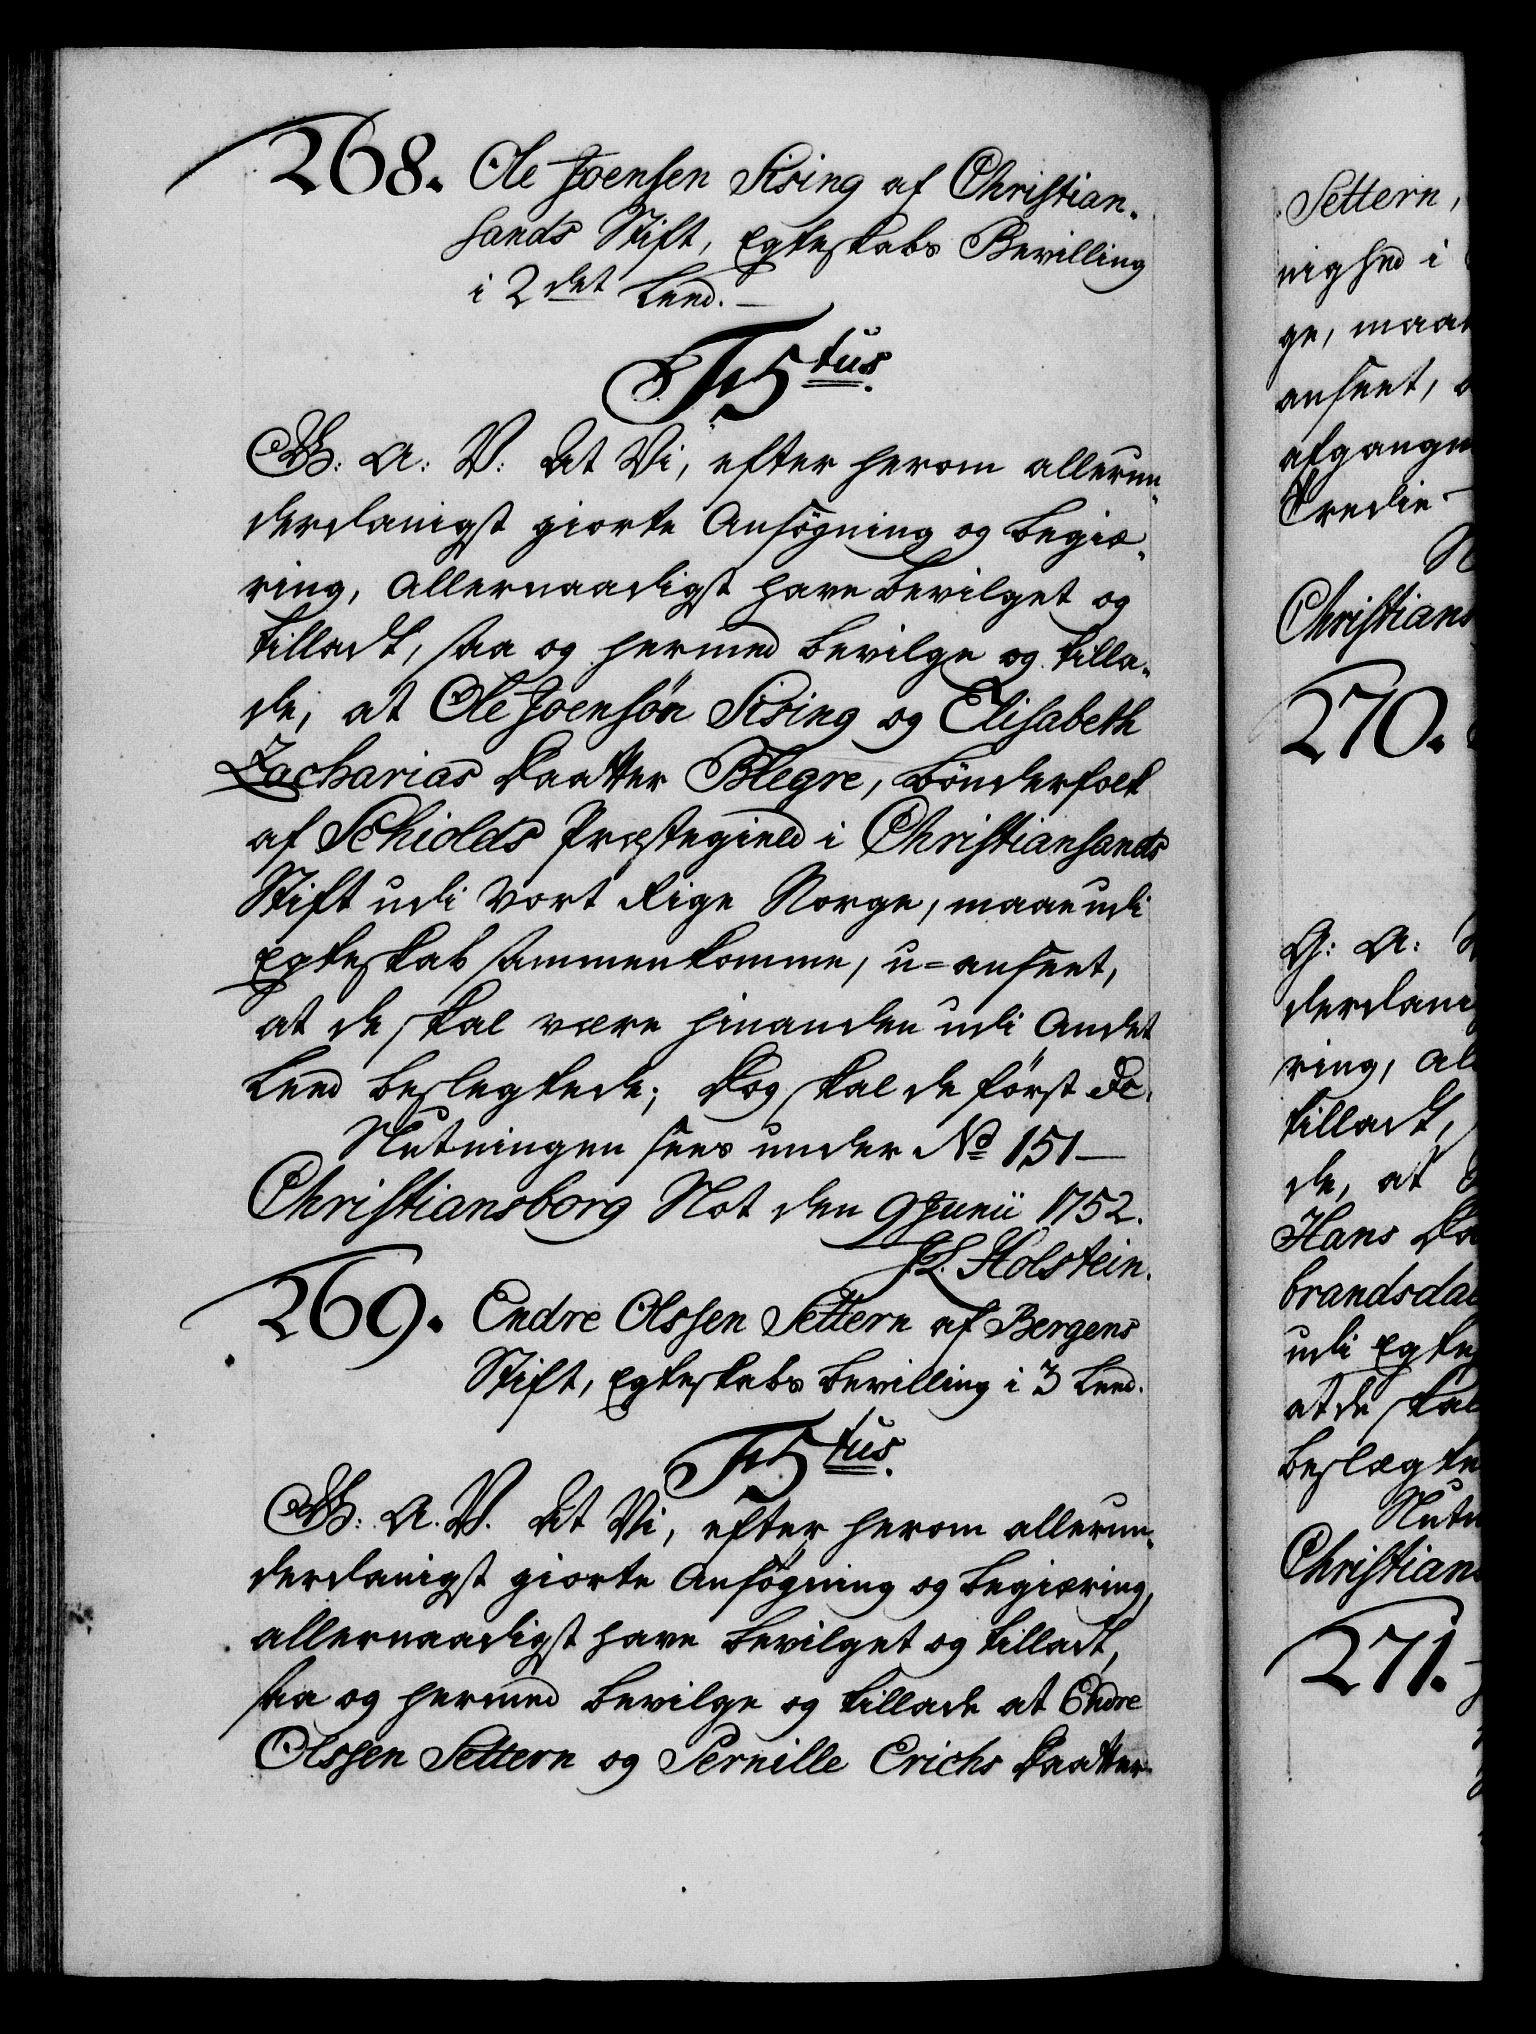 268. Ole Joensen Sising af Christian-
sands Stift, Egteskabs Bevilling
i 2det Leed.
F5tus.
G: A: V: At Vi, efter herom allerun-
derdanigst giorte Ansøgning og begiæ-
ring, allernaadigst have bevilget og
tilladt, saa og hermed bevilge og tilla-
de, at Ole Joensøn Sising og Elisabeth
Zacharias Daatter Blegre, bønderfolk
af Schiolds Præstegield i Christiansands
Stift udi Vort Rige Norge, maae udi
Egteskab sammenkomme, u-anseet,
at de skal være hinanden udi Andet
Leed beslegtede; Dog skal de først &c.
Slutningen sees under No 151
Christiansborg Slot den 9 Junii 1752.
J.L. Holstein.
269. Endre Olssen Settern af Bergens
Stift, Egteskabs bevilling i 3 Leed.
F5tus.
G: A. V. At Vi, efter herom allerun-
derdanigst giorte Ansøgning og begiæring,
allernaadigst have bevilget og tilladt,
saa og hermed bevilge og tillade at Endre
Olssen Settern og Pernille Erichs Daatter
Settern,
nighed i
ge, maa
anseet,
afgangn
Tredie
Christians
270.
G: A:
derdani
ring, al
tilladt,
de, at
Hans Da
brandsda
udi Egte
at de skal
beslægte
Slutn
Christian
271.